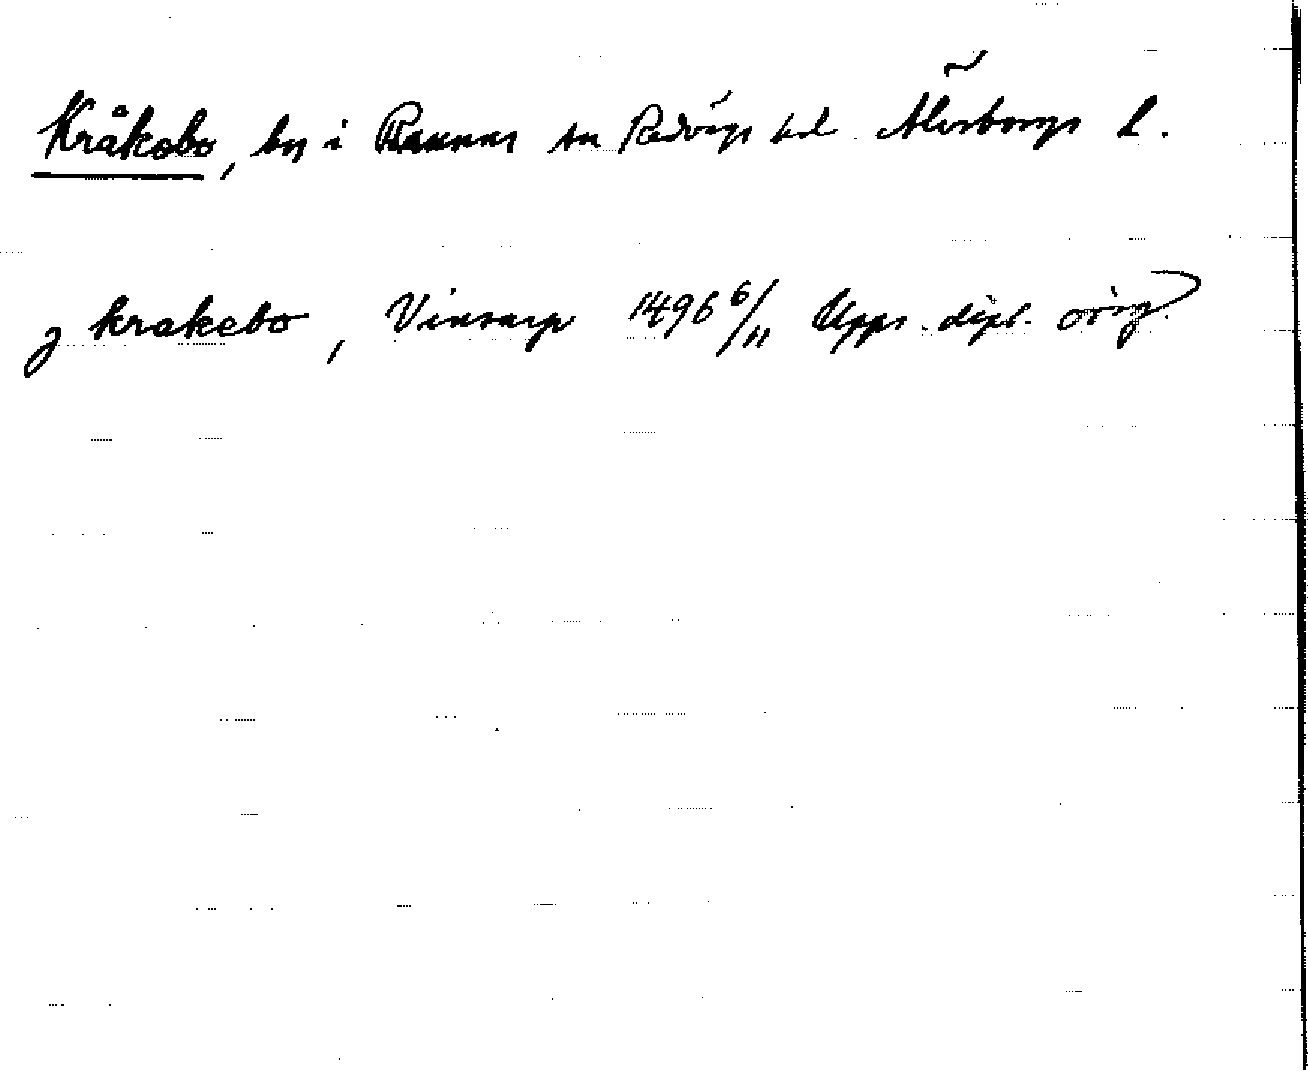 Kråkebo, by i Rännes sn Redvägs hd Älvsborgs l.
j krakebo, Vinsarp 1496 6/11 Upps. dipl. orig.